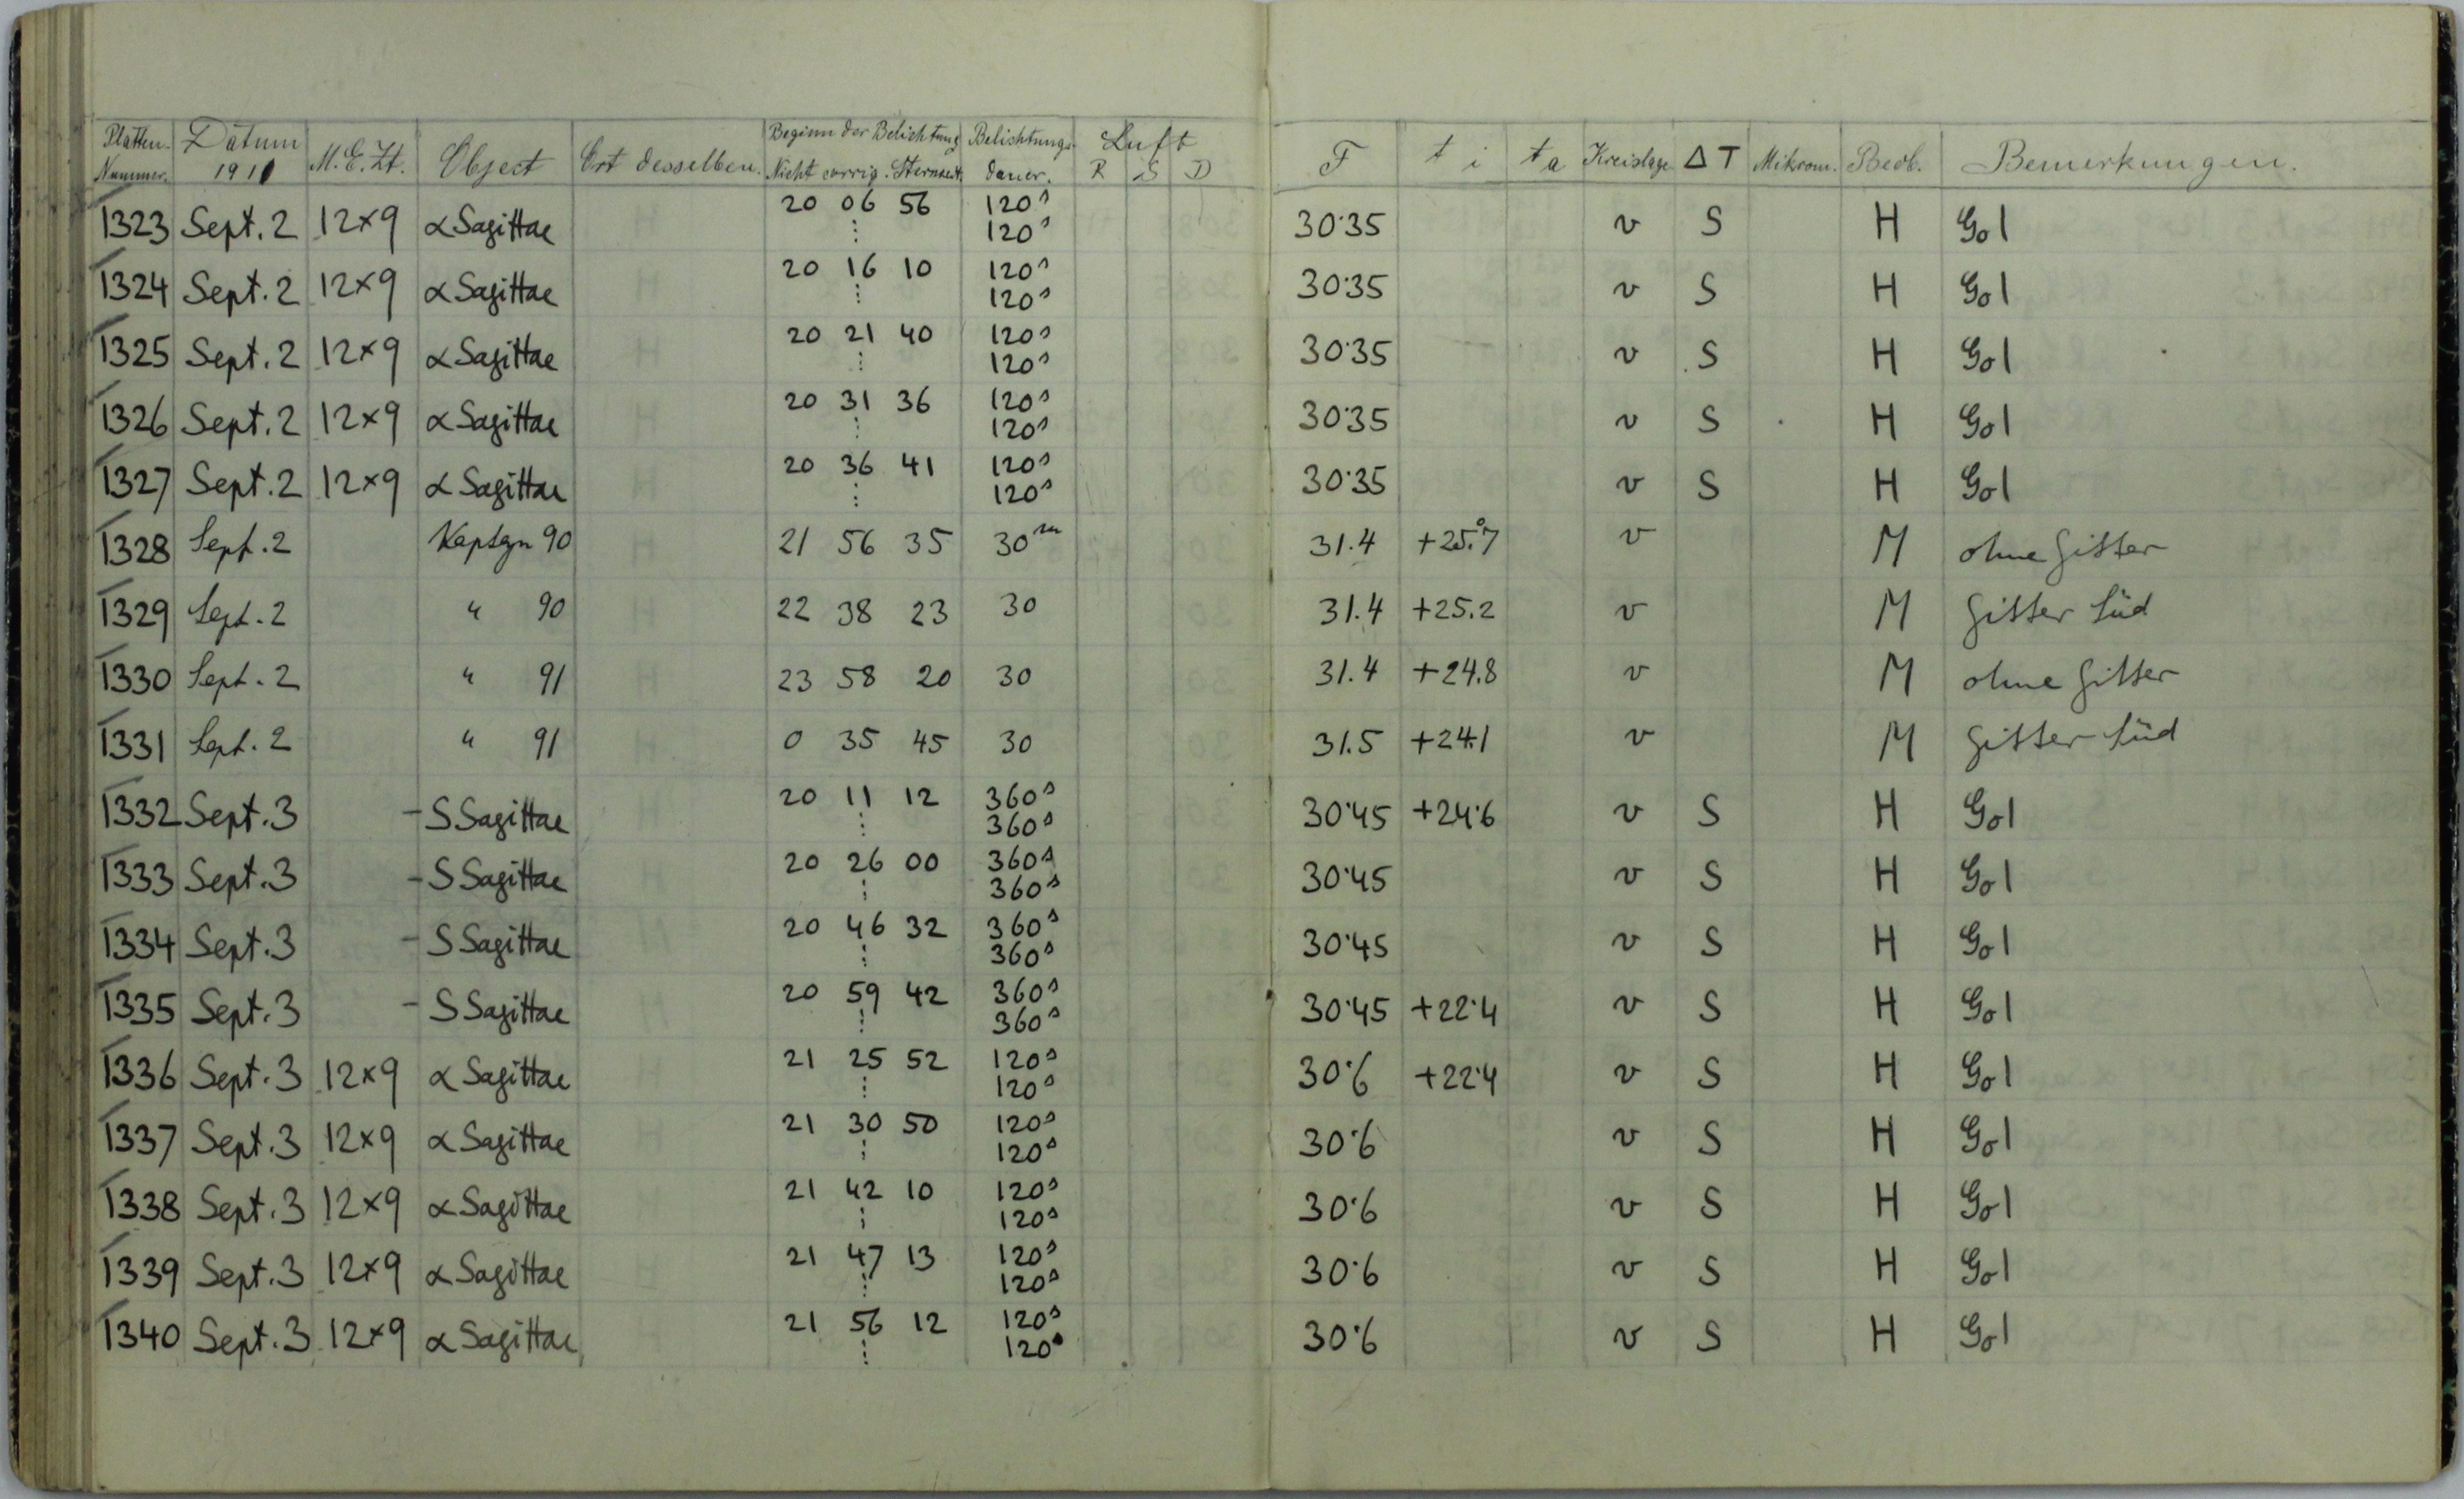 Platten- Nummer. Datum 1911 M.E.Zt. Object Ort desselben. Beginn der Belichtung Nicht corrig. Sternzeit. Belichtungs- dauer. Luft R S D F t i t a Kreislage ΔT Mikrom. Beob. Bemerkungen.
1323 Sept. 2 12×9 α Sagittae 20 06 56 120s 30·35 v S H Gol
⋮ 120s
1324 Sept. 2 12×9 α Sagittae 20 16 10 120s 30·35 v S H Gol
⋮ 120s
1325 Sept. 2 12×9 α Sagittae 20 21 40 120s 30·35 v S H Gol
⋮ 120s
1326 Sept. 2 12×9 α Sagittae 20 31 36 120s 30·35 v S H Gol
⋮ 120s
1327 Sept. 2 12×9 α Sagittae 20 36 41 120s 30·35 v S H Gol
⋮ 120s
1328 Sept. 2 Kapteyn 90 21 56 35 30m 31.4 +25.°7 v M ohne Gitter
1329 Sept. 2 " 90 22 38 23 30 31.4 +25.2 v M Gitter Süd
1330 Sept. 2 " 91 23 58 20 30 31.4 +24.8 v M ohne Gitter
1331 Sept. 2 " 91 0 35 45 30 31.5 +24.1 v M Gitter Süd
1332 Sept. 3 - S Sagittae 20 11 12 360s 30·45 +24·6 v S H Gol
⋮ 360s
1333 Sept. 3 - S Sagittae 20 26 00 360s 30·45 v S H Gol
⋮ 360s
1334 Sept. 3 - S Sagittae 20 46 32 360s 30·45 v S H Gol
⋮ 360s
1335 Sept. 3 - S Sagittae 20 59 42 360s 30·45 +22·4 v S H Gol
⋮ 360s
1336 Sept. 3 12×9 α Sagittae 21 25 52 120s 30·6 +22·4 v S H Gol
⋮ 120s
1337 Sept. 3 12×9 α Sagittae 21 30 50 120s 30·6 v S H Gol
⋮ 120s
1338 Sept. 3 12×9 α Sagittae 21 42 10 120s 30·6 v S H Gol
⋮ 120s
1339 Sept. 3 12×9 α Sagittae 21 47 13 120s 30·6 v S H Gol
⋮ 120s
1340 Sept. 3 12×9 α Sagittae 21 56 12 120s 30·6 v S H Gol
⋮ 120s